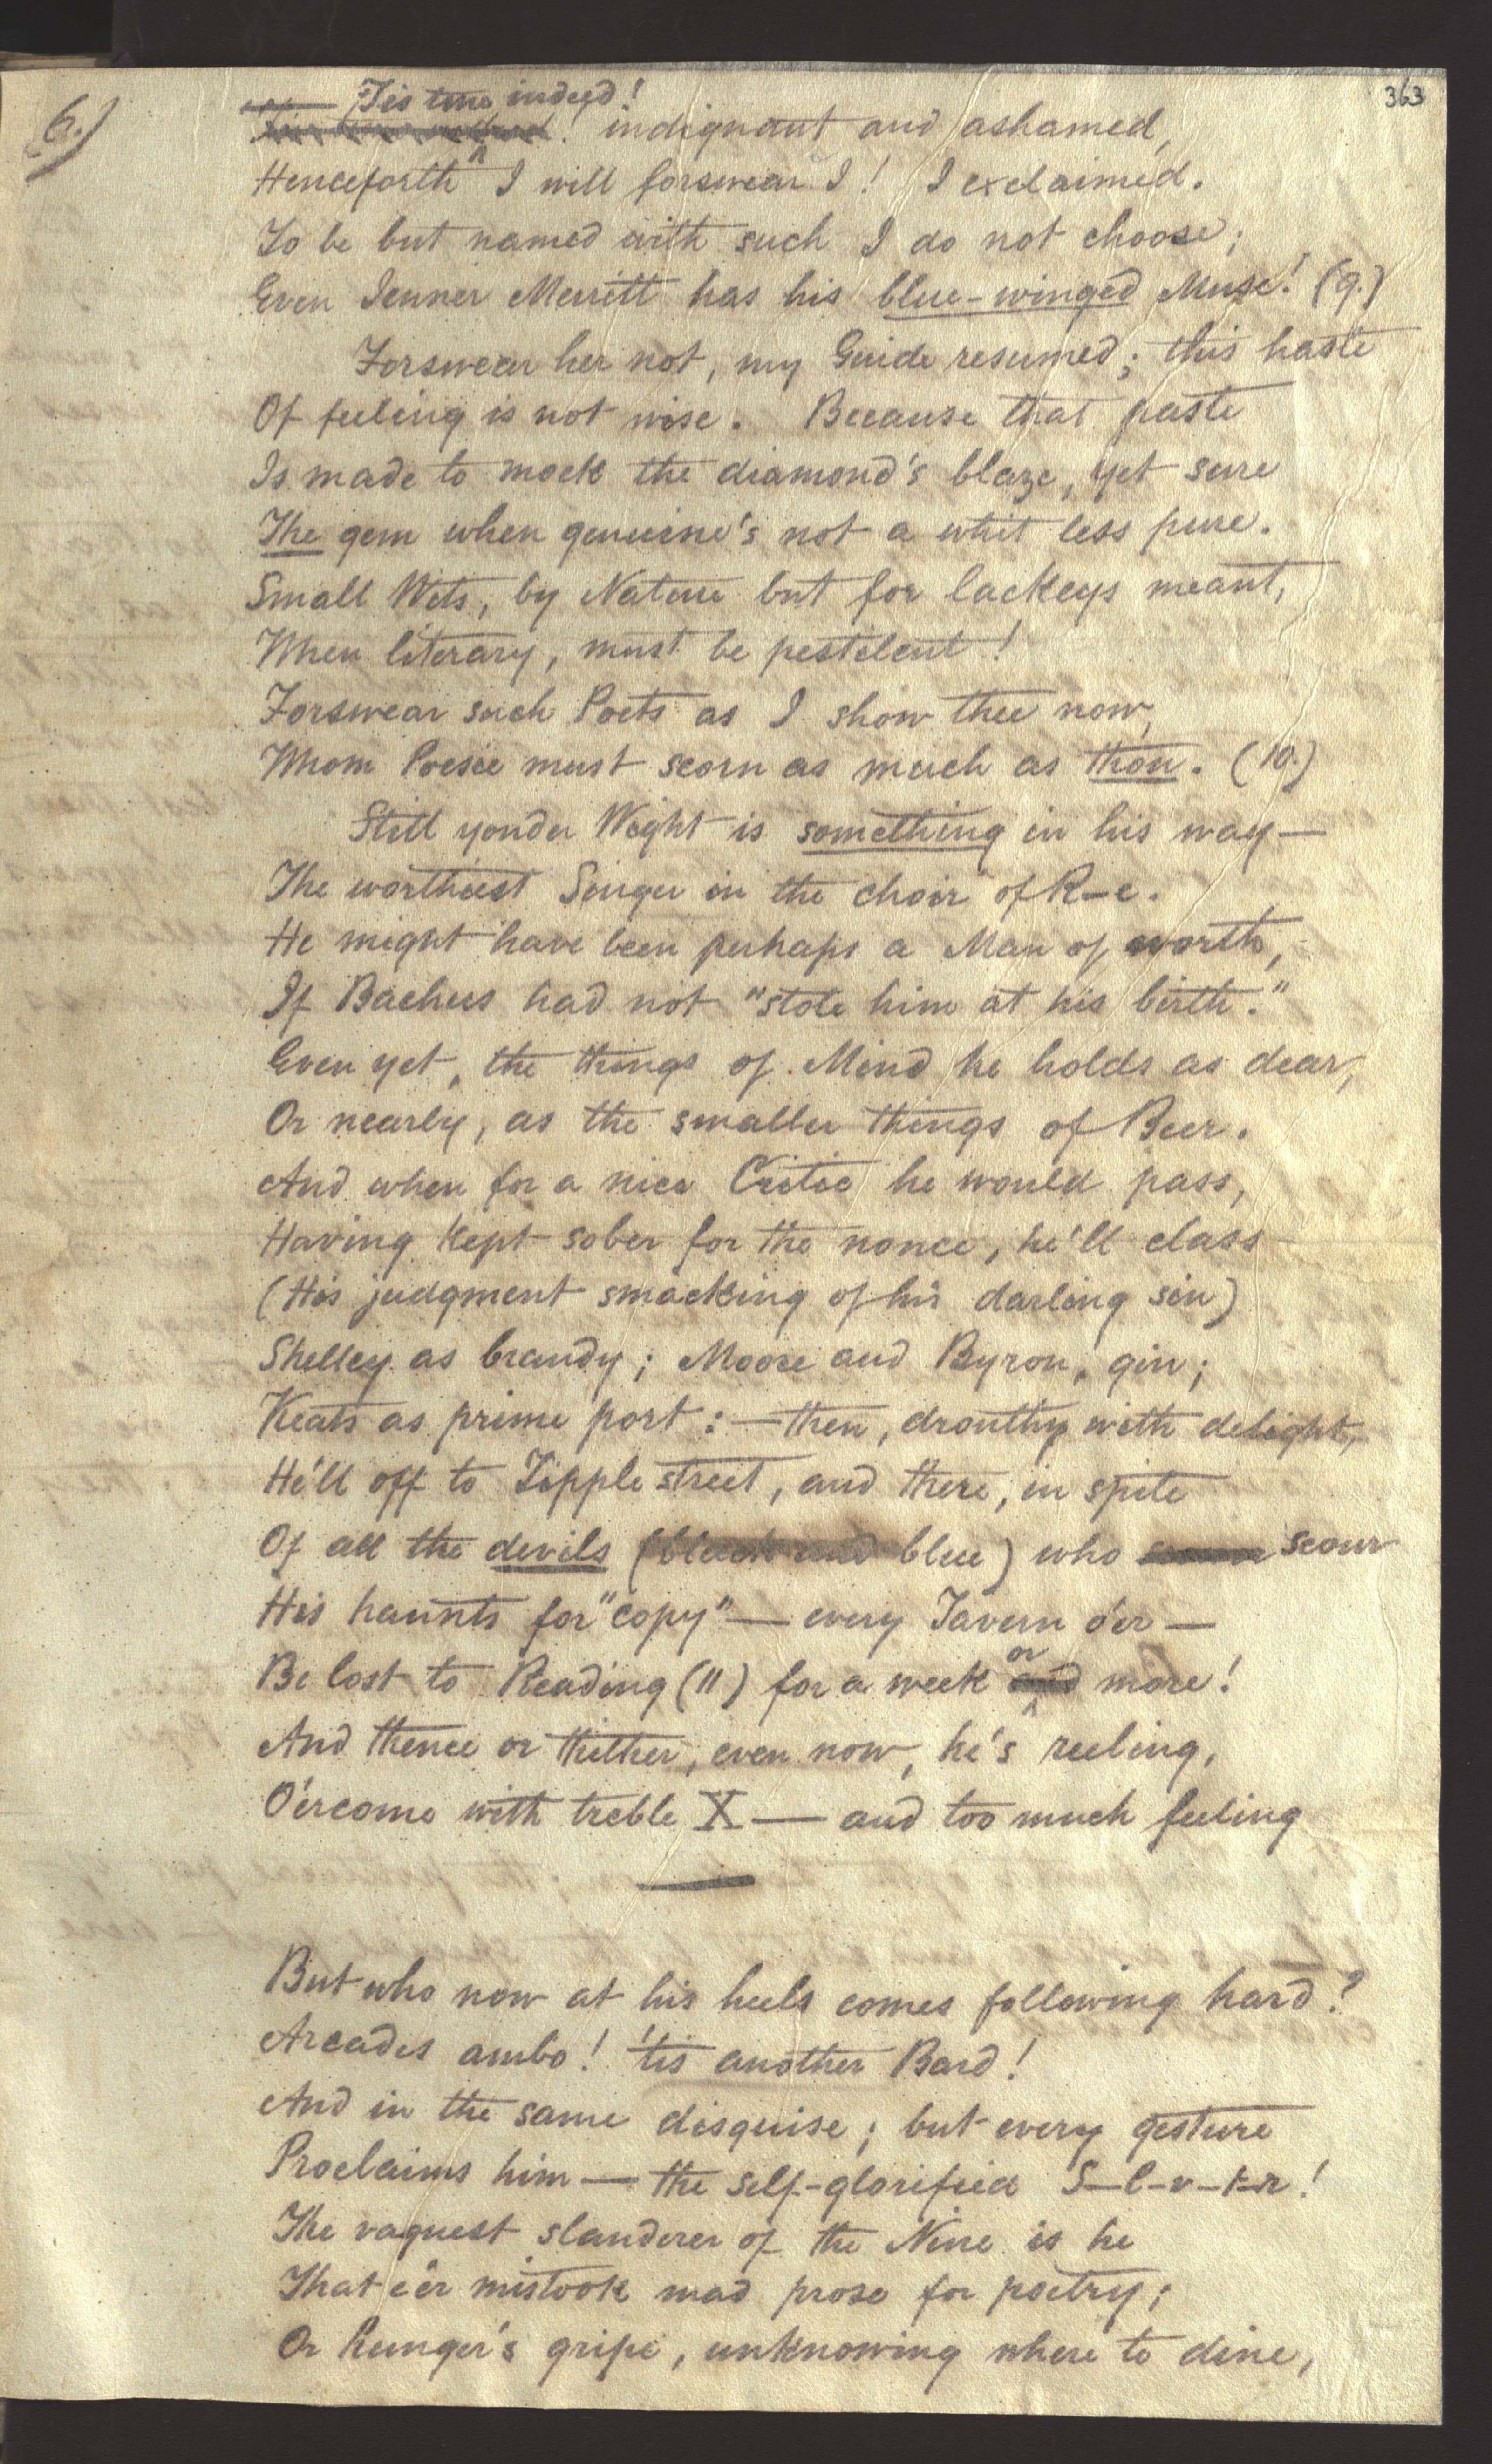 363
6.)
— 'Tis true indeed!
! indignant and ashamed,
Henceforth I will forswear I! I exclaimed.
To be but named with such I do not choose;
Even Jenner Merritt has his blue-winged Muse! (9.)
Forswear her not, my Guide resumed; this haste
Of feeling is not wise. Because that paste
Is made to mock the diamond's blaze, yet sure
The gem when genuine's not a whit less pure.
Small Wits, by Nature but for lackeys meant,
When literary, must be pestilent!
Forswear such Poets as I show thee now,
Whom Poesie must scorn as much as thou. (10.)
Still yonder Wight is something in his way—
The worthiest Singer in the choir of R—e.
He might have been perhaps a Man of worth,
If Bachus had not "stole him at his birth."
Even yet, the things of Mind he holds as dear,
Or nearly, as the smaller things of Beer.
And when for a nice Critic he would pass,
Having kept sober for the nonce, he'll class
(His judgment smacking of his darling sin)
Shelley as brandy; Moore and Byron, gin;
Keats as prime port:—then, drouthy with delight,
He'll off to Tipple street, and there, in spite
Of all the devils (black and blue) who scour
His haunts for "copy"—every Tavern o'er—
Be lost to Reading (11) for a week and or more!
And thence or thither, even now, he's reeling,
O'ercome with treble X—and too much feeling
But who now at his heels comes following hard?
Arcades ambo! 'tis another Bard!
And in the same disguise; but every gesture
Proclaims him—the self-glorified S—l—v—t—r!
The vaguest slanderer of the Nine is he
That e'er mistook mad prose for poetry;
Or hunger's gripe, unknowing where to dine,